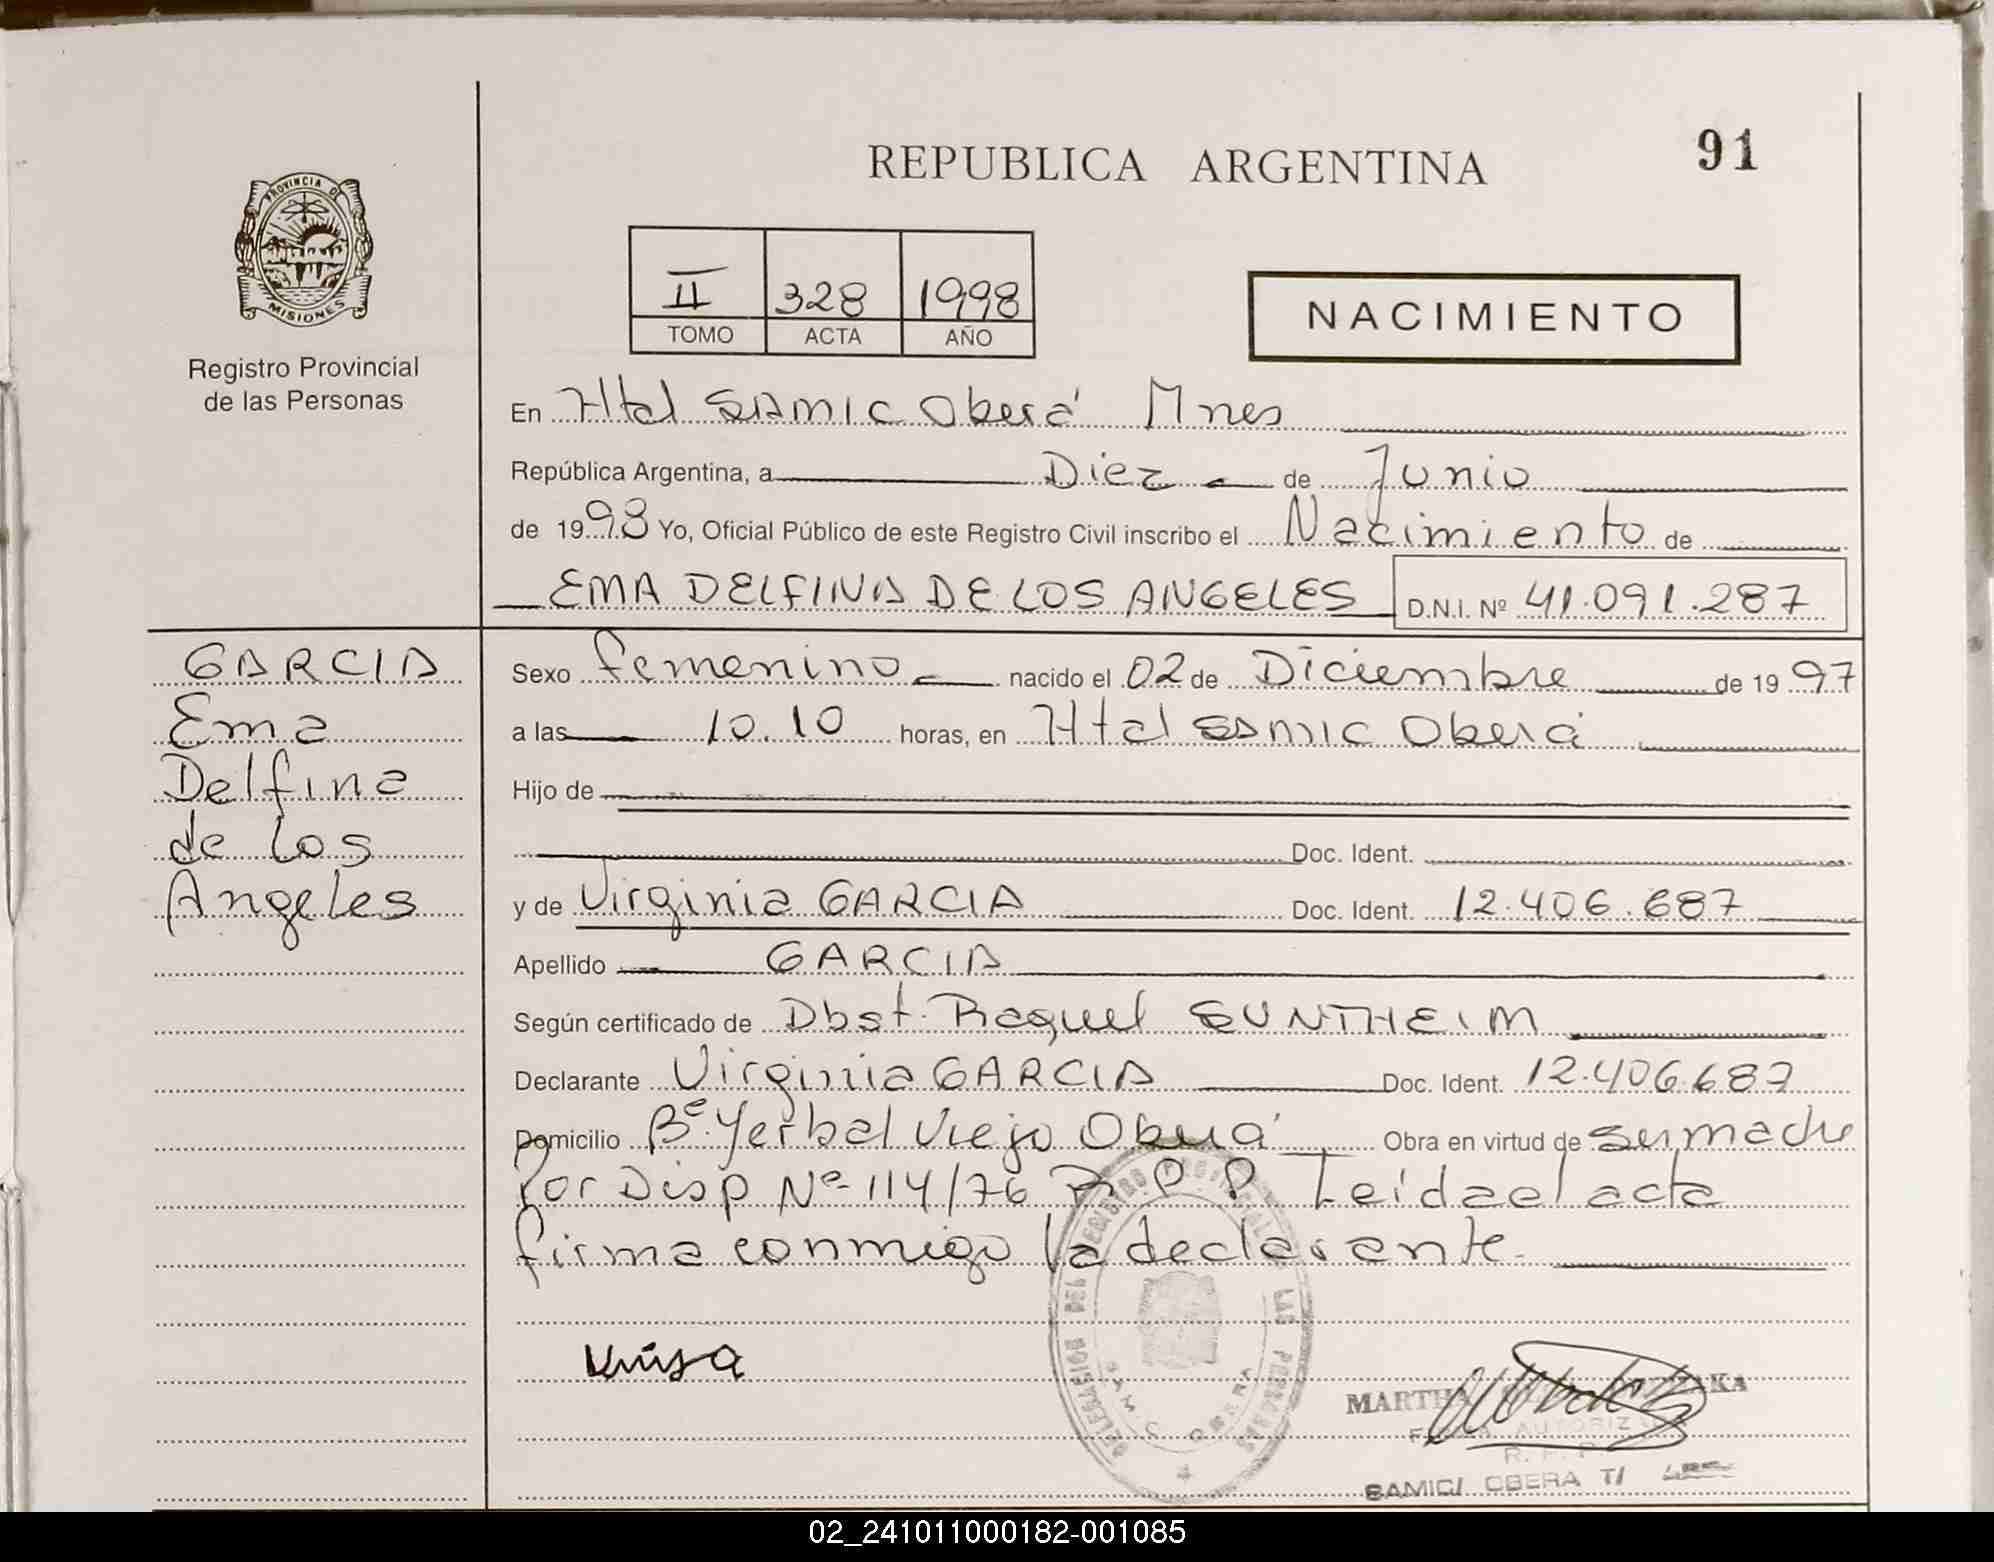 91
REPUBLICA ARGENTINA
PROVINCIA DE
MISIONES
Registro Provincial
de las Personas
II 328 1998
TOMO ACTA AÑO
NACIMIENTO
En Htal SAMIC Oberá Mnes
República Argentina, a Diez de Junio
de 1998 Yo, Oficial Público de este Registro Civil inscribo el Nacimiento de
EMA DELFINA DE LOS ANGELES D.N.I. Nº 41.091.287
GARCIA
Ema
Delfina
de los
Angeles
Sexo femenino nacido el 02 de Diciembre de 1997
a las 10.10 horas, en Htal SAMIC Oberá
Hijo de
Doc. Ident.
y de Virginia GARCIA Doc. Ident. 12.406.687
Apellido GARCIA
Según certificado de Obst. Raquel SUNTHEIM
Declarante Virginia GARCIA Doc. Ident. 12.406.687
Domicilio Bº Yerbal Viejo Oberá Obra en virtud de ser madre
Por Disp Nº 114/76 R P P Leída el acta
firma conmigo la declarante.
DELEGACION DEL REGISTRO PROVINCIAL DE LAS PERSONAS
SAMIC OBERA
MARTHA
AUTORIZ
R. P. P.
SAMIC/ OBERA T/
02_241011000182-001085